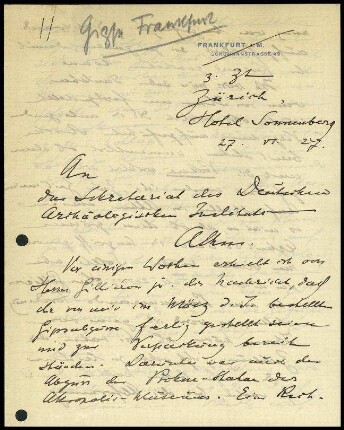 11
Gipse Frankfurt
FRANKFURT a/M.
z. Zt
Zürich,
Hotel Sonnenberg
27. VI. 27.
An
das Sekretariat des Deutschen
Archäologischen Instituts
Athen.
Vor einigen Wochen erhielt ich von
Herrn Gilliéron jr. die Nachricht, daß
die von mir im März d. J. bestellten
Gipsabgüsse fertig gestellt seien
und zur Verpackung bereit
stünden. Darunter war auch der
Abguss der Poken-Statue des
Akropolis-Museums. Ein Rech-